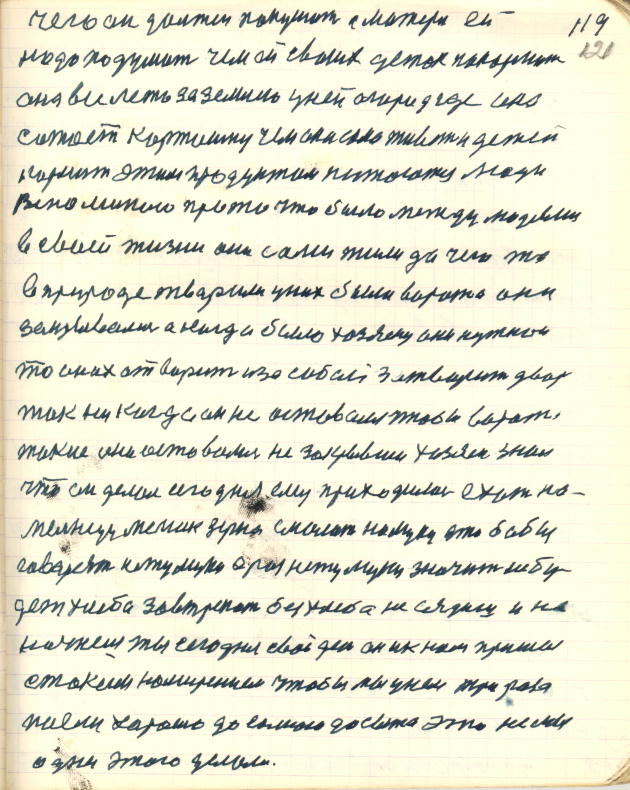 чего он должен покушат с матери ей 119
надо подумат чем ей своих деток покормит 121
она все лето за землею у ней огород где она
сажает картошку чем она сама живет и детей
кормит этим продуктом потому люди
Вспоминаю про то что было между людями
в своей жизни они сами жили да чего то
в природе творили у них были ворота они
закрывалис а когда было хозяену они нужнои
то он их отварит и за собой затварит двор
так никогда он не оставлял чтобы ворота
такие они оставалис не закрывши хозяен знал
что он делал сегодня ему приходилос ехат на
мелницу мешок зерна смолат на муку это бабы
говарят нету муки а раз нету муки значит небу
дет хлеба завтрекат без хлеба не сядиш и не
начнеш ты сегодня свой ден он и к нам пришел
с такеим намерением чтобы мы у нем три раза
поели харошо до самого досыта это не мы
одни этого делали.